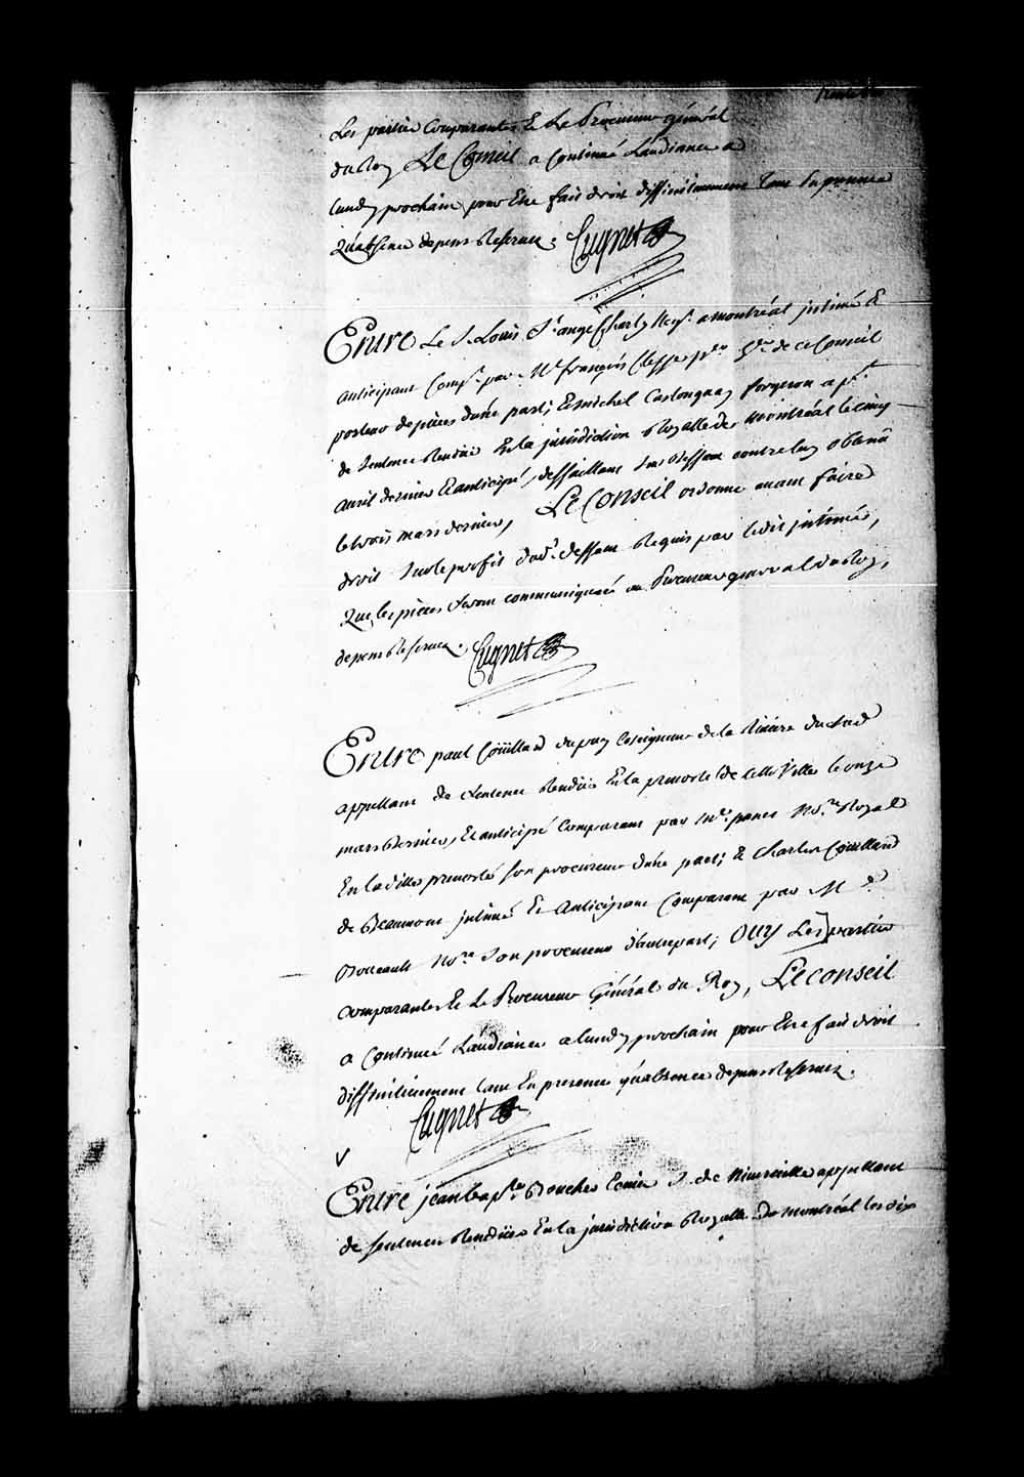 Les parties Comparantes Et Le Procureur général
du Roy Le Conseil a Continué Laudiance a
lundy prochain pour Etre fait droit diffinitivement tant En presence
Qu'absence depens Reservez. Cugnet
Entre Le S. Louis S.t ange Charly Neg.t a montréal intimé Et
anticipant Comp.t par M.e françois Clesse p.er h.er de ce Conseil
porteur de pieces d'une part; Et michel Castonguay forgeron app.t
de sentence Rendüe En la jurisdiction Royalle de montréal le cinq
avril dernier Et anticipé, deffaillant sur deffaut contre luy obtenû
le trois mars dernier, Le Conseil ordonne avant faire
droit sur le profit dud.t deffaut Requis par ledit jntimé,
Que les pieces seront communiquées au Procureur general du Roy,
depens Reservez. Cugnet
Entre paul Coüillard dupuy Coseigneur de la Riviere du sud
appellant de sentence Rendüe En la prevosté de cette Ville le onze
mars dernier, Et anticipé Comparant par M.e panet No.re Royal
En ladite prevosté son procureur d'une part; Et Charles Coüillard
de Beaumont jntimé Et Anticipant Comparant par M.e
Boucault No.re Son procureur d'autre part; OUY Les parties
comparantes Et Le Procureur Général du Roy, Le conseil
a Continué Laudiance a lundy prochain pour Etre fait droit
diffinitivement tant En presence qu'absence depens Reservez.
Cugnet
V
Entre jean bap.te Boucher Ecuier S. de Niverville appellant
de sentence Rendüe En la jurisdiction Royalle de montréal les dix